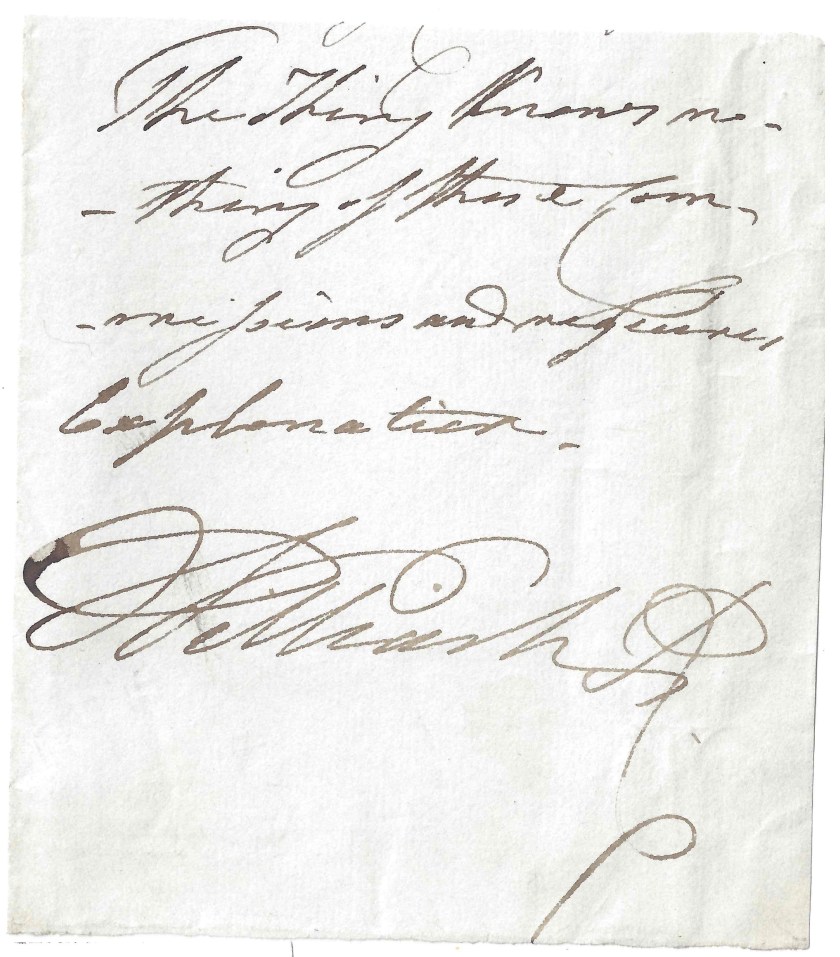 The King Knows no-
-thing of these Com-
-missions and requires
Explanation -
William R